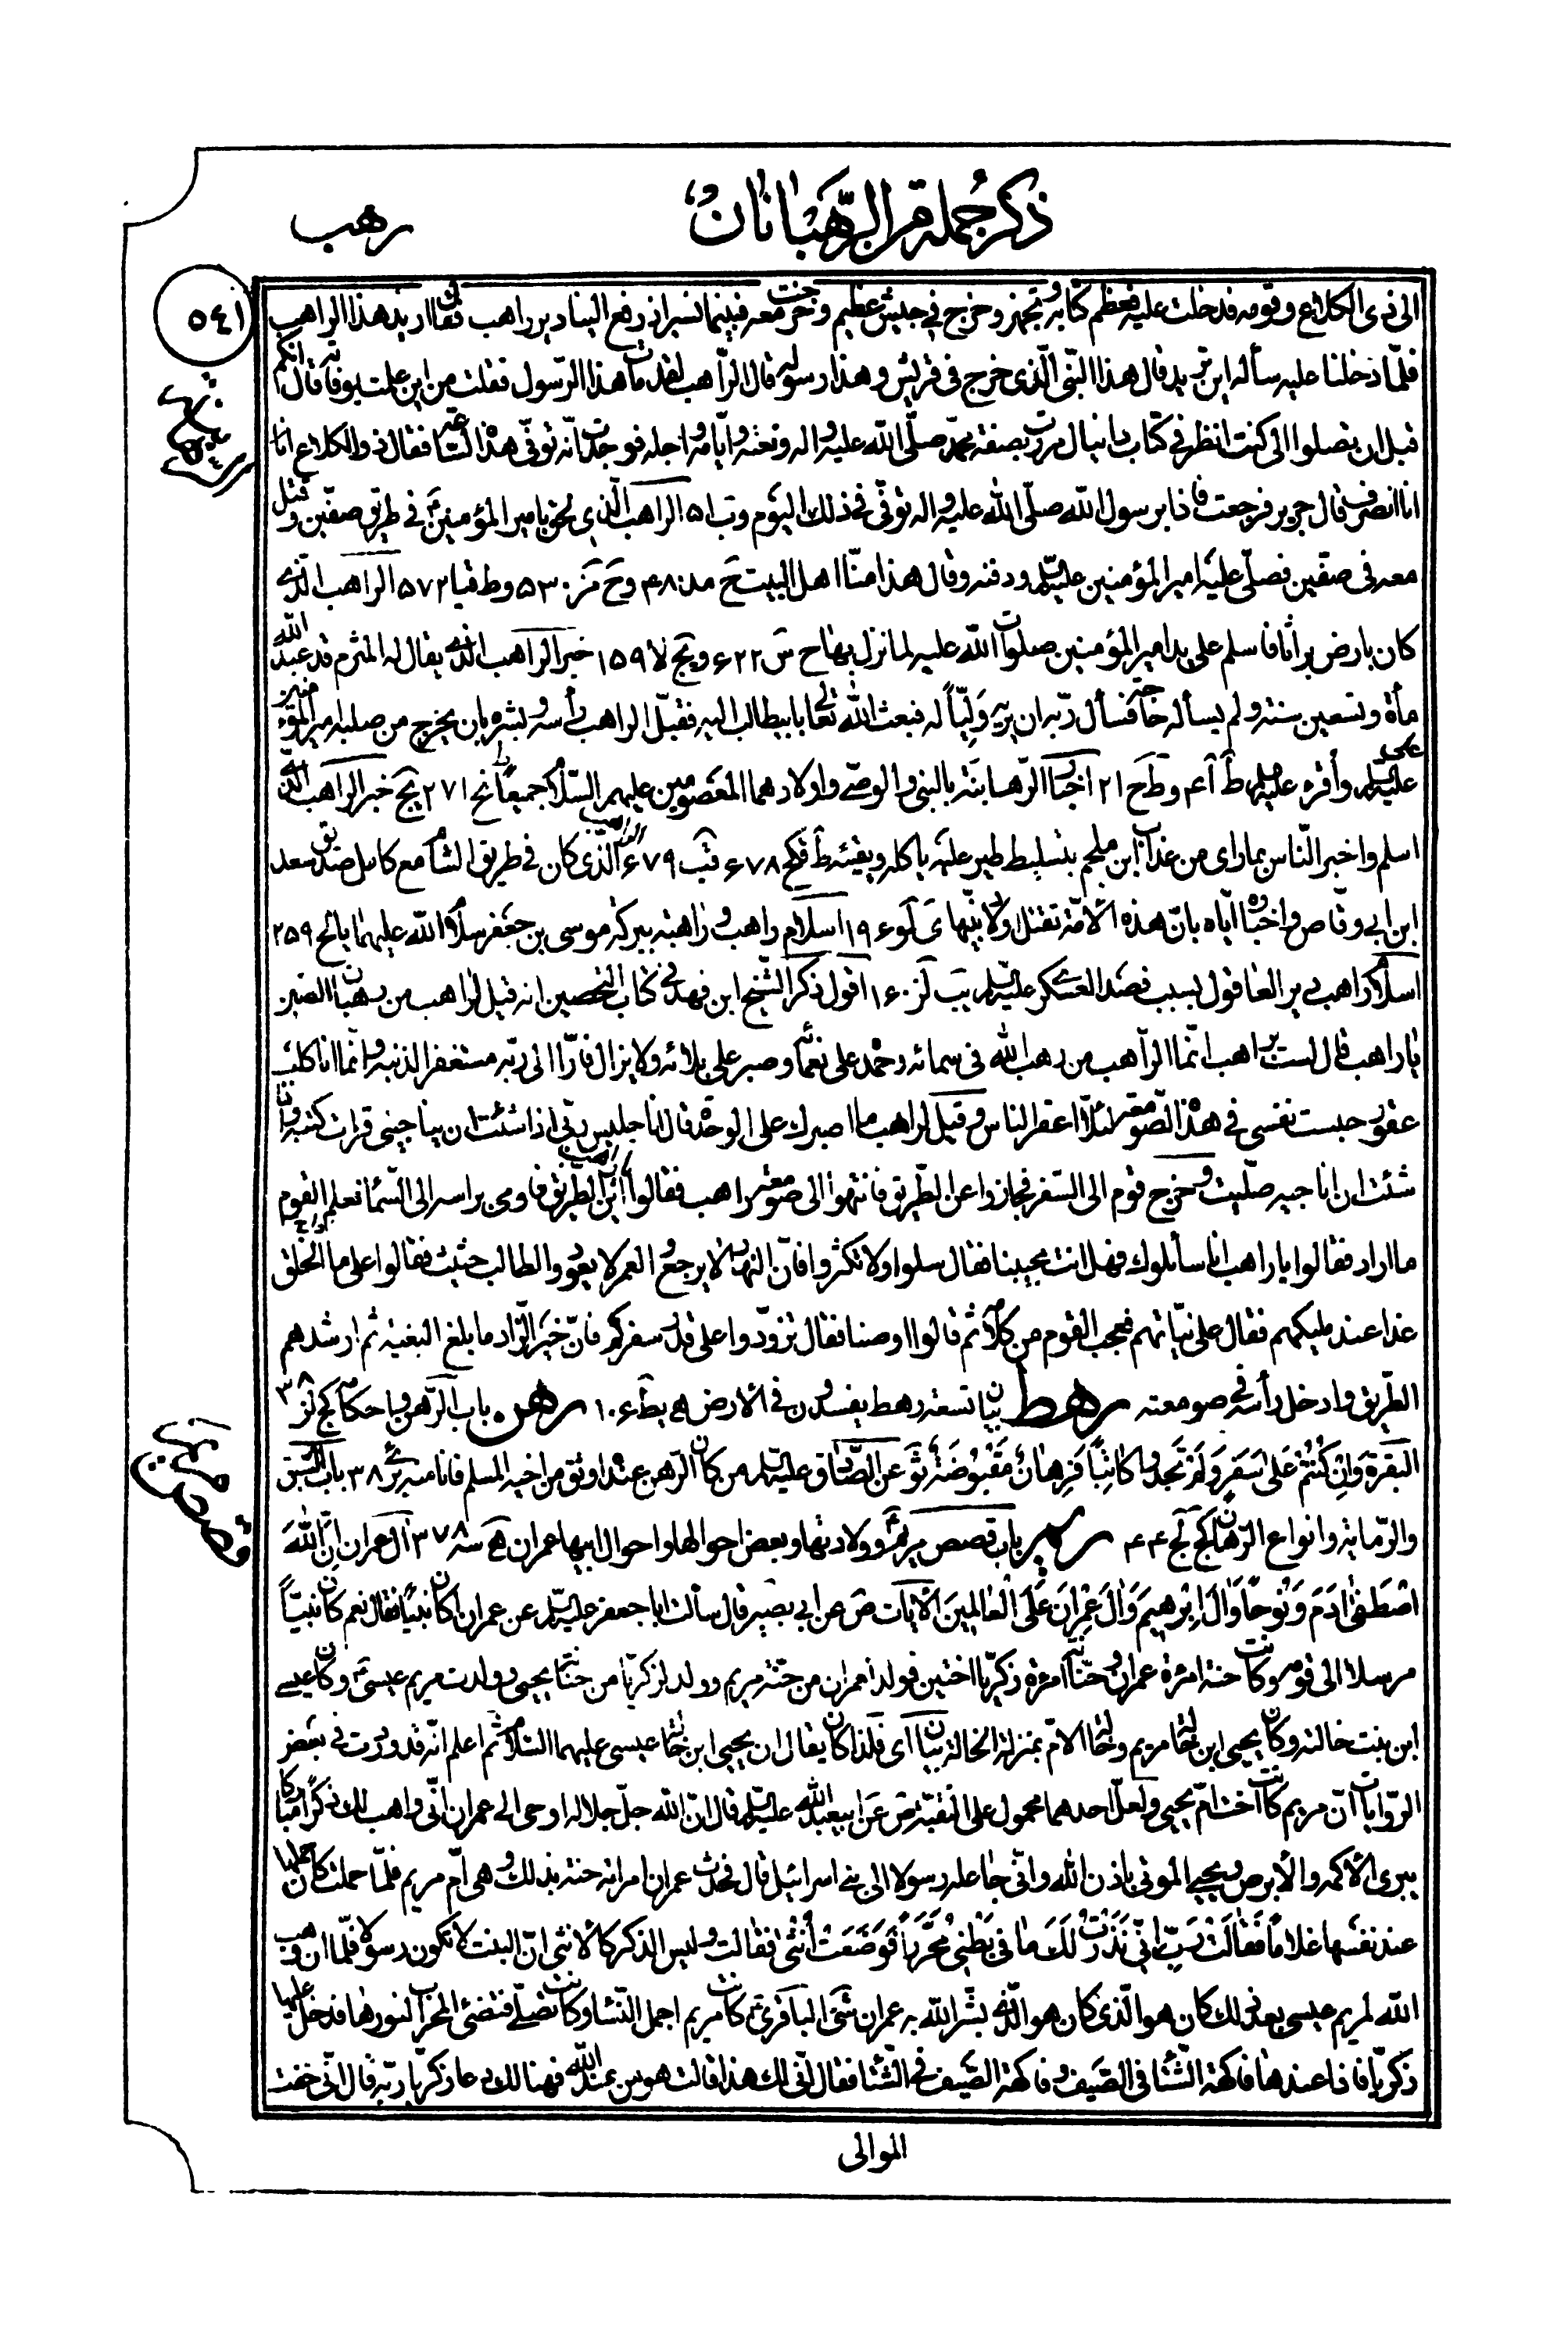 ذكر جملة من الرهبانان
رهب
٥٤١
الى ذى الكلاع وقومه فدخلت عليه فعظم كتابه وتجهز وخرج فى جيش عظيم وخرجت معه فبينما نسير اذ رفع الينا دير راهب فقال اريد هذا الراهب
فلمّا دخلنا عليه سأله اين تريد قال هذا النبى الّذى خرج فى قريش وهذا رسوله قال الرّاهب لقد مات هذا الرّسول فقلت من اين علمت بوفاته قال انكم
قبل ان تصلوا الى كنت انظر فى كتاب دانيال مررت بصفة محمّد صلّى الله عليه واله ونعته وايّامه واجله فوجدت انّه توفّى هذه السّاعة فقال ذو الكلاع انا
انا انصرف قال جرير فرجعت فاذا برسول الله صلّى الله عليه واله توفّى فى ذلك اليوم وب ٥١ الراهب الّذى لحق باميرالمؤمنين فى طريق صفّين وقتل
معه فى صفين فصلّى عليه اميرالمؤمنين عليه السلم ودفنه وقال هذا منّا اهل البيت ح مد ٤٨٠ وح نز ٥٣٠ وط قيا ٥٧٢ الراهب الّذى
كان بارض براثا فاسلم على يد اميرالمؤمنين صلوات الله عليه لما نزل بها ح س ٦٢٢ ويج لا ١٥٩ خبر الراهب الّذى يقال له المثرم قد عبد الله
مأة وتسعين سنة ولم يسأله حاجة فسأل ربّه ان يريه وَلِيّاً له فبعث الله تعالى بابيطالب اليه فقبّل الراهب رأسه وبشره بان يخرج من صلبه اميرالمؤمنين
علىّ عليه السلم وأقره عليه السلم ط آ ٤ وط ح ٢١ اخبار الرّهبانيّة بالنبى والوصى واولادهما المعصومين عليهم السّلام جميعاً نح ٢٧١ يج خبر الرّاهب الّذى
اسلم واخبر النّاس بما راى من عذاب ابن ملجم بتسليط طير عليه ياكله ويقيئه ط قكح ٦٧٨ قيب ٦٧٩ الراهب الّذى كان فى طريق الشام مع كامل صديق سعد
ابن ابى وقاص واخباره ايّاه بانّ هذه الامّة تقتل اولاد نبيّها ى لو ١٩٦ اسلام راهب وراهبة ببركة موسى بن جعفر سلام الله عليهما يا لح ٢٥٩
اسلام راهب دير العاقول بسبب فصد العسكرى عليه السلم يب لز ١٦٠ اقول ذكر الشّيخ ابن فهد فى كتاب التحصين انه قيل لراهب من رهبان الصّين
يا راهب قال لست براهب انّما الرّاهب من رهب الله فى سمائه وحمد على نعمائه وصبر على بلائه ولا يزال فارّا الى ربّه مستغفرا لذنبه وانّما انا كلب
عقور حبست نفسى فى هذه الصّومعة لئلّا اعقر الناس وقيل لراهب ما اصبرك على الوحدة قال انا جليس ربّى اذا شئت ان يناجينى قرات كتبه وان
شئت ان اناجيه صلّيت وخرج قوم الى السّفر فجازوا عن الطّريق فانتهوا الى صومعة راهب فقالوا يا راهب اين الطّريق فاومى براسه الى السّماء فعلم القوم
ما اراد فقالوا يا راهب انا سائلوك فهل انت مجيبنا فقال سلوا ولا تكثروا فانّ النهار لا يرجع والعمر لا يعود والطالب حثيث فقالوا على ما الخلق
غدا عند مليكهم فقال على نيّاتهم فعجب القوم من كلامه ثم قالوا اوصنا فقال تزوّدوا على قدر سفركم فانّ خير الزّاد ما بلغ البغية ثم ارشدهم
الطّريق وادخل رأسه فى صومعته رهط بيان تسعة رهط يفسدون فى الارض ه يط ١٠٦ رهن باب الرّهن واحكامه كج لز ٣٨
البقرة وَاِنْ كُنْتُمْ عَلى سَفَرٍ وَلَمْ تَجِدُوا كاتِباً فَرِهانٌ مَقْبُوضَةٌ ثو عن الصّادق عليه السلم من كان الرّهن عنده اوثق من اخيه المسلم فانا منه برىء ٣٨ باب السّبق
والرّماية وانواع الرّهان كج لج ٤٤ ريم باب قصص مريم وولادتها وبعض احوالها واحوال ابيها عمران ه سه ٣٧٨ آل عمران اِنَّ اللهَ
اصْطَفى ادَمَ وَنُوحاً وَالَ اِبْرهيمَ وَالَ عِمْرانَ عَلَى الْعالَمينَ الايات ص عن ابى بصير قال سالت ابا جعفر عليه السلم عن عمران اكان نبيّا فقال نعم كان نبيّاً
مرسلا الى قومه وكانت حنة امرءة عمران وحنّانة امرءة زكريّا اختين فولد لعمران من حنّة مريم وولد لزكريّا من حنّانة يحيى وولدت مريم عيسى وكان عيسى
ابن بنت خالته وكان يحيى ابن خالة مريم وخالة الامّ بمنزلة الخالة بيان اى فلذا كان يقال ان يحيى ابن خالة عيسى عليهما السّلام ثم اعلم انّه قد وردت فى بعض
الرّوايات انّ مريم كانت اخت امّ يحيى ولعلّ احدهما محمول على التقيّة ص عن ابيعبدالله عليه السلم قال انّ الله جلّ جلاله اوحى الى عمران انّى واهب لك ذكراً مباركا
يبرى الاكمه والابرص ويحيى الموتى باذن الله وانّى جاعله رسولا الى بنى اسرائيل قال فحدث عمران امراته حنة بذلك وهى امّ مريم فلمّا حملت كان حملها
عند نفسها غلاماً فَقالَتْ رَبِّ اِنّى نَذَرْتُ لَكَ ما فى بَطْنى مُحَرَّراً فَوَضَعَتْ اُنْثى فقالت وليس الذكر كالانثى انّ البنت لا تكون رسولا فلمّا ان وهب
الله لمريم عيسى بعد ذلك كان هو الّذى كان هو الّذى بشّر الله به عمران شى الباقرى كانت مريم اجمل النّساء وكانت تصلّى فتضئ المحراب لنورها فدخل عليها
زكريّا فاذا عندها فاكهة الشّتاء فى الصّيف وفاكهة الصّيف فى الشّتاء فقال انّى لك هذا قالت هو من عند الله فهنالك دعا زكريّا ربّه قال انّى خفت
الموالى
قصص مريم